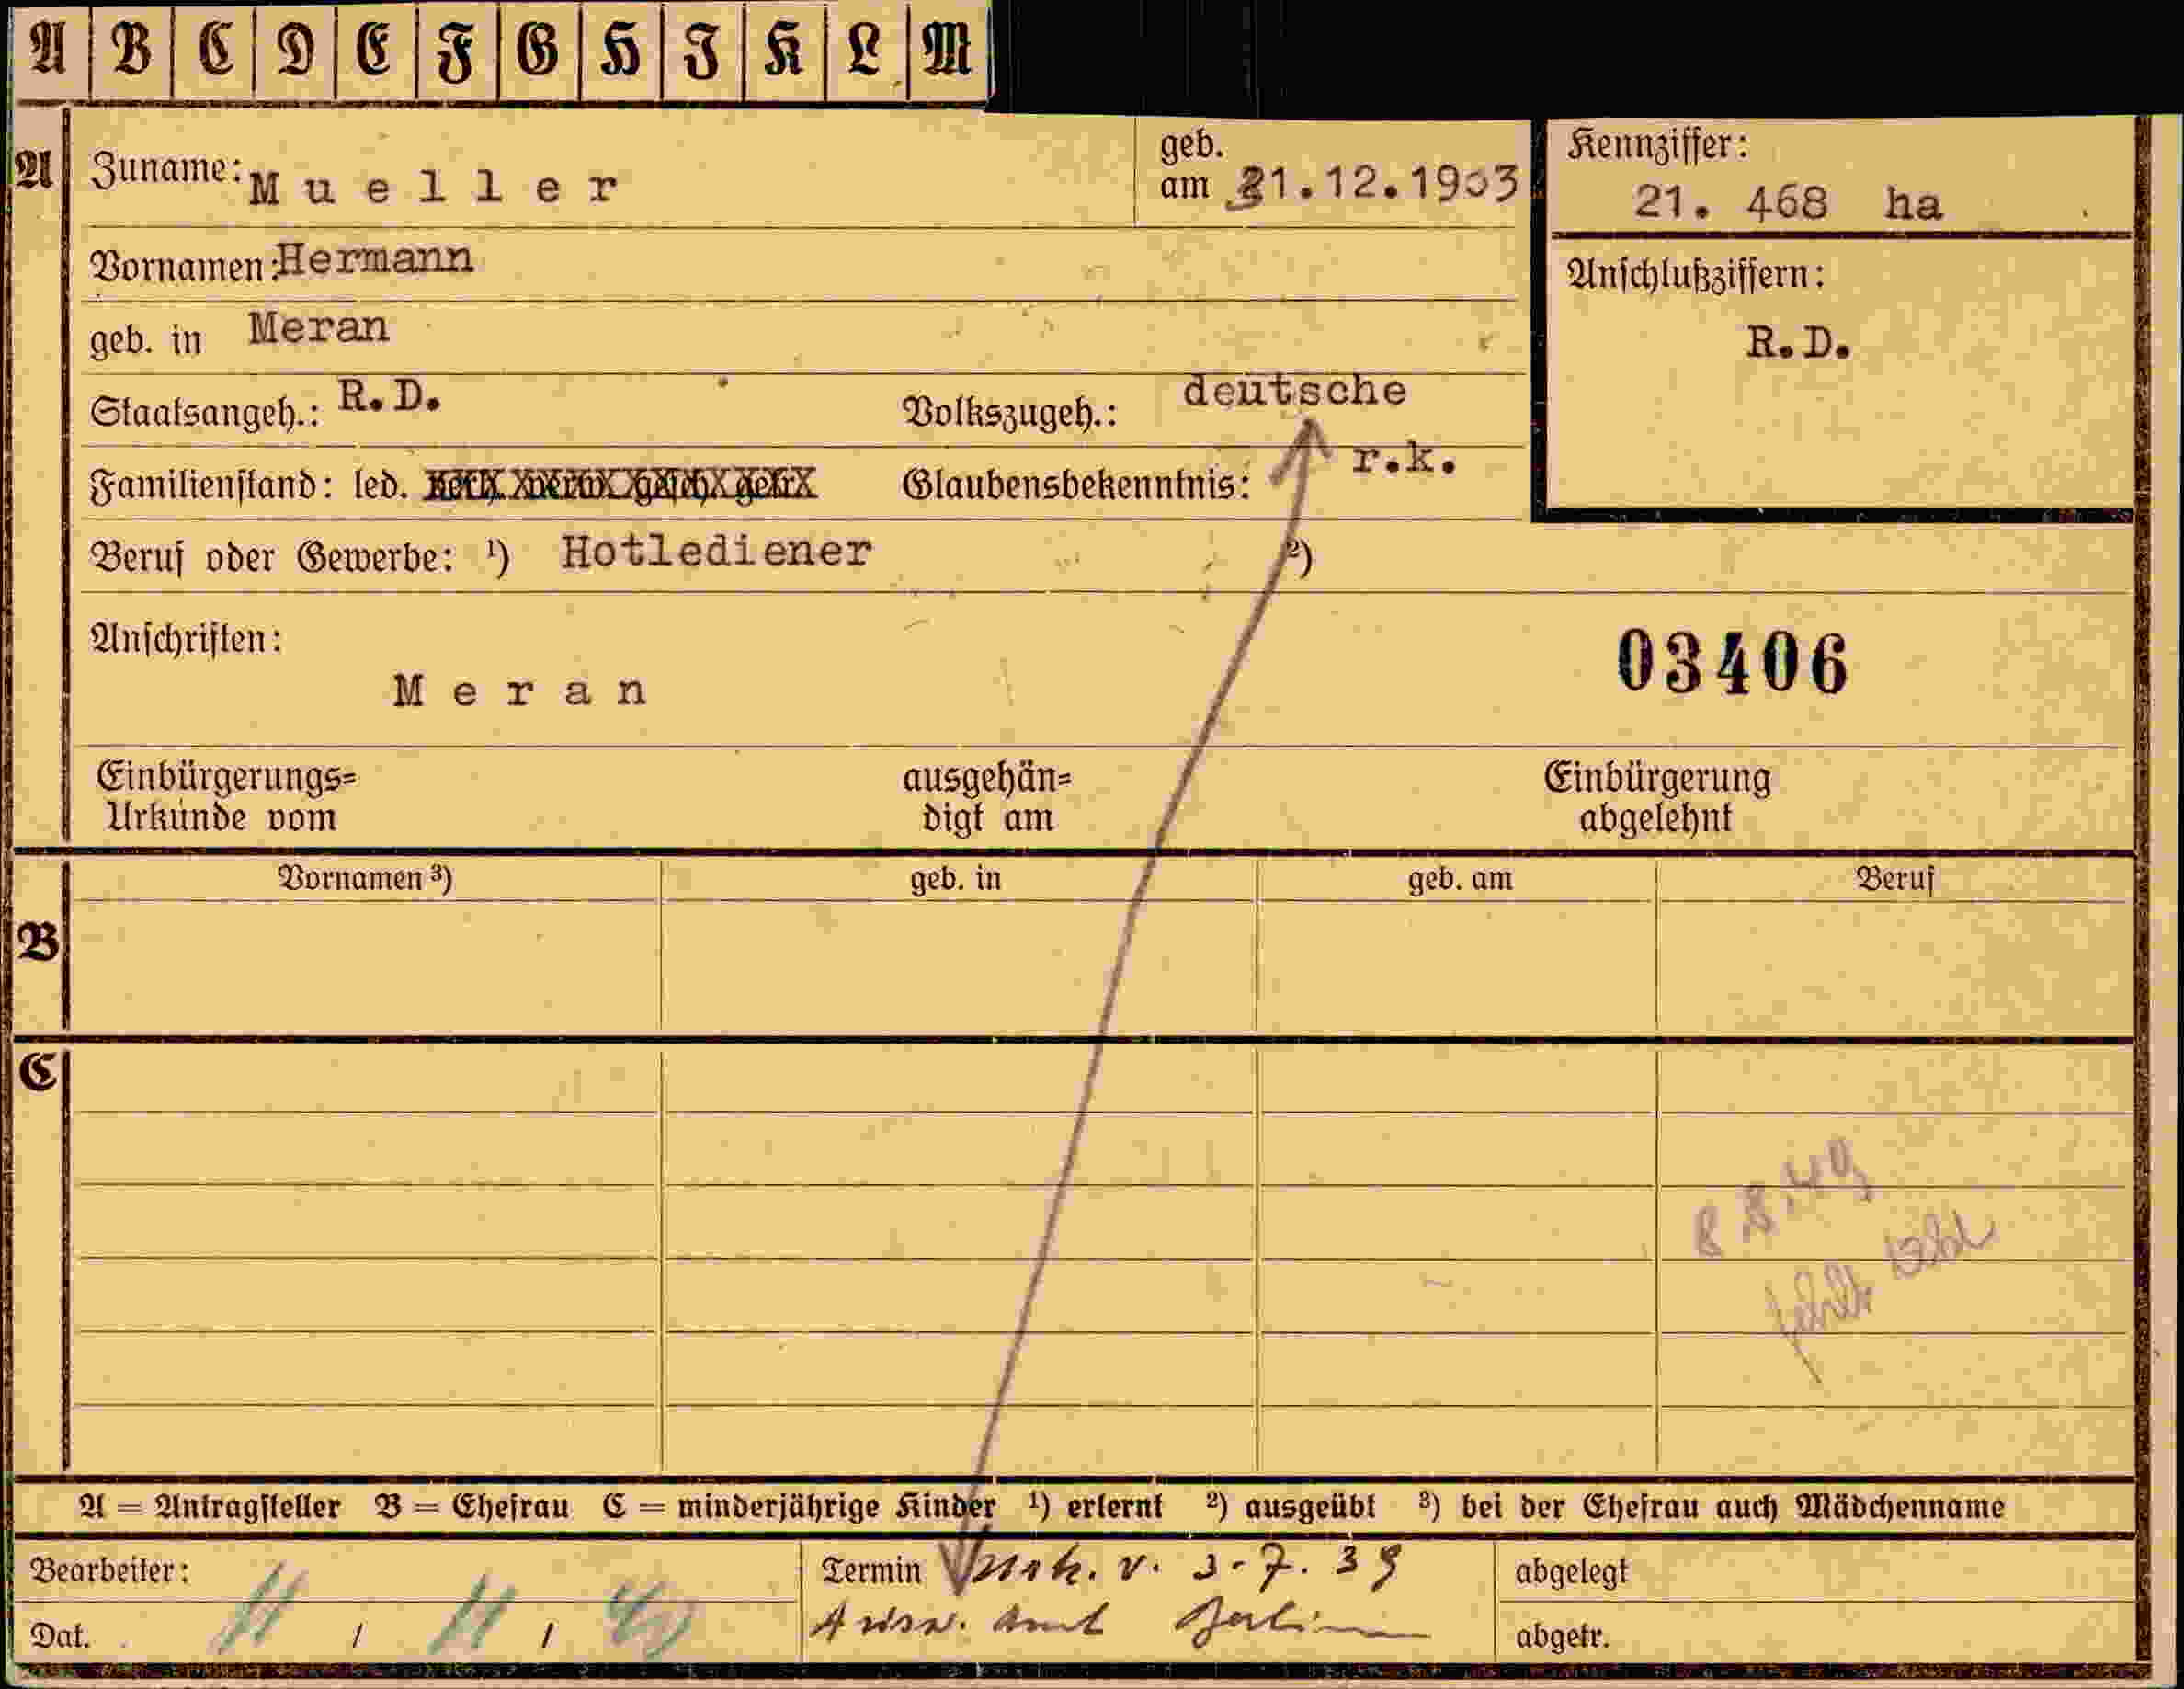 A B C D E F G H I K L M
A
Zuname: Mueller
geb. am 21.12.1903
Kennziffer:
21. 468 ha
Vornamen: Hermann
Anschlußziffern:
R.D.
geb. in Meran
Staatsangeh.: R.D. Volkszugeh.: deutsche
Familienstand: led. verh. verw. gesch. getr. Glaubensbekenntnis: r.k.
Beruf oder Gewerbe: ¹) Hotlediener ²)
Anschriften:
Meran
03406
Einbürgerungs=
Urkunde vom
ausgehän=
digt am
Einbürgerung
abgelehnt
B
Vornamen ³) geb. in geb. am Beruf
C
8.8.49
fehlt
A = Antragsteller B = Ehefrau C = minderjährige Kinder ¹) erlernt ²) ausgeübt ³) bei der Ehefrau auch Mädchenname
Bearbeiter:
Dat. / /
Termin v. 3.7.39
Ausw. Amt Berlin
abgelegt
abgetr.